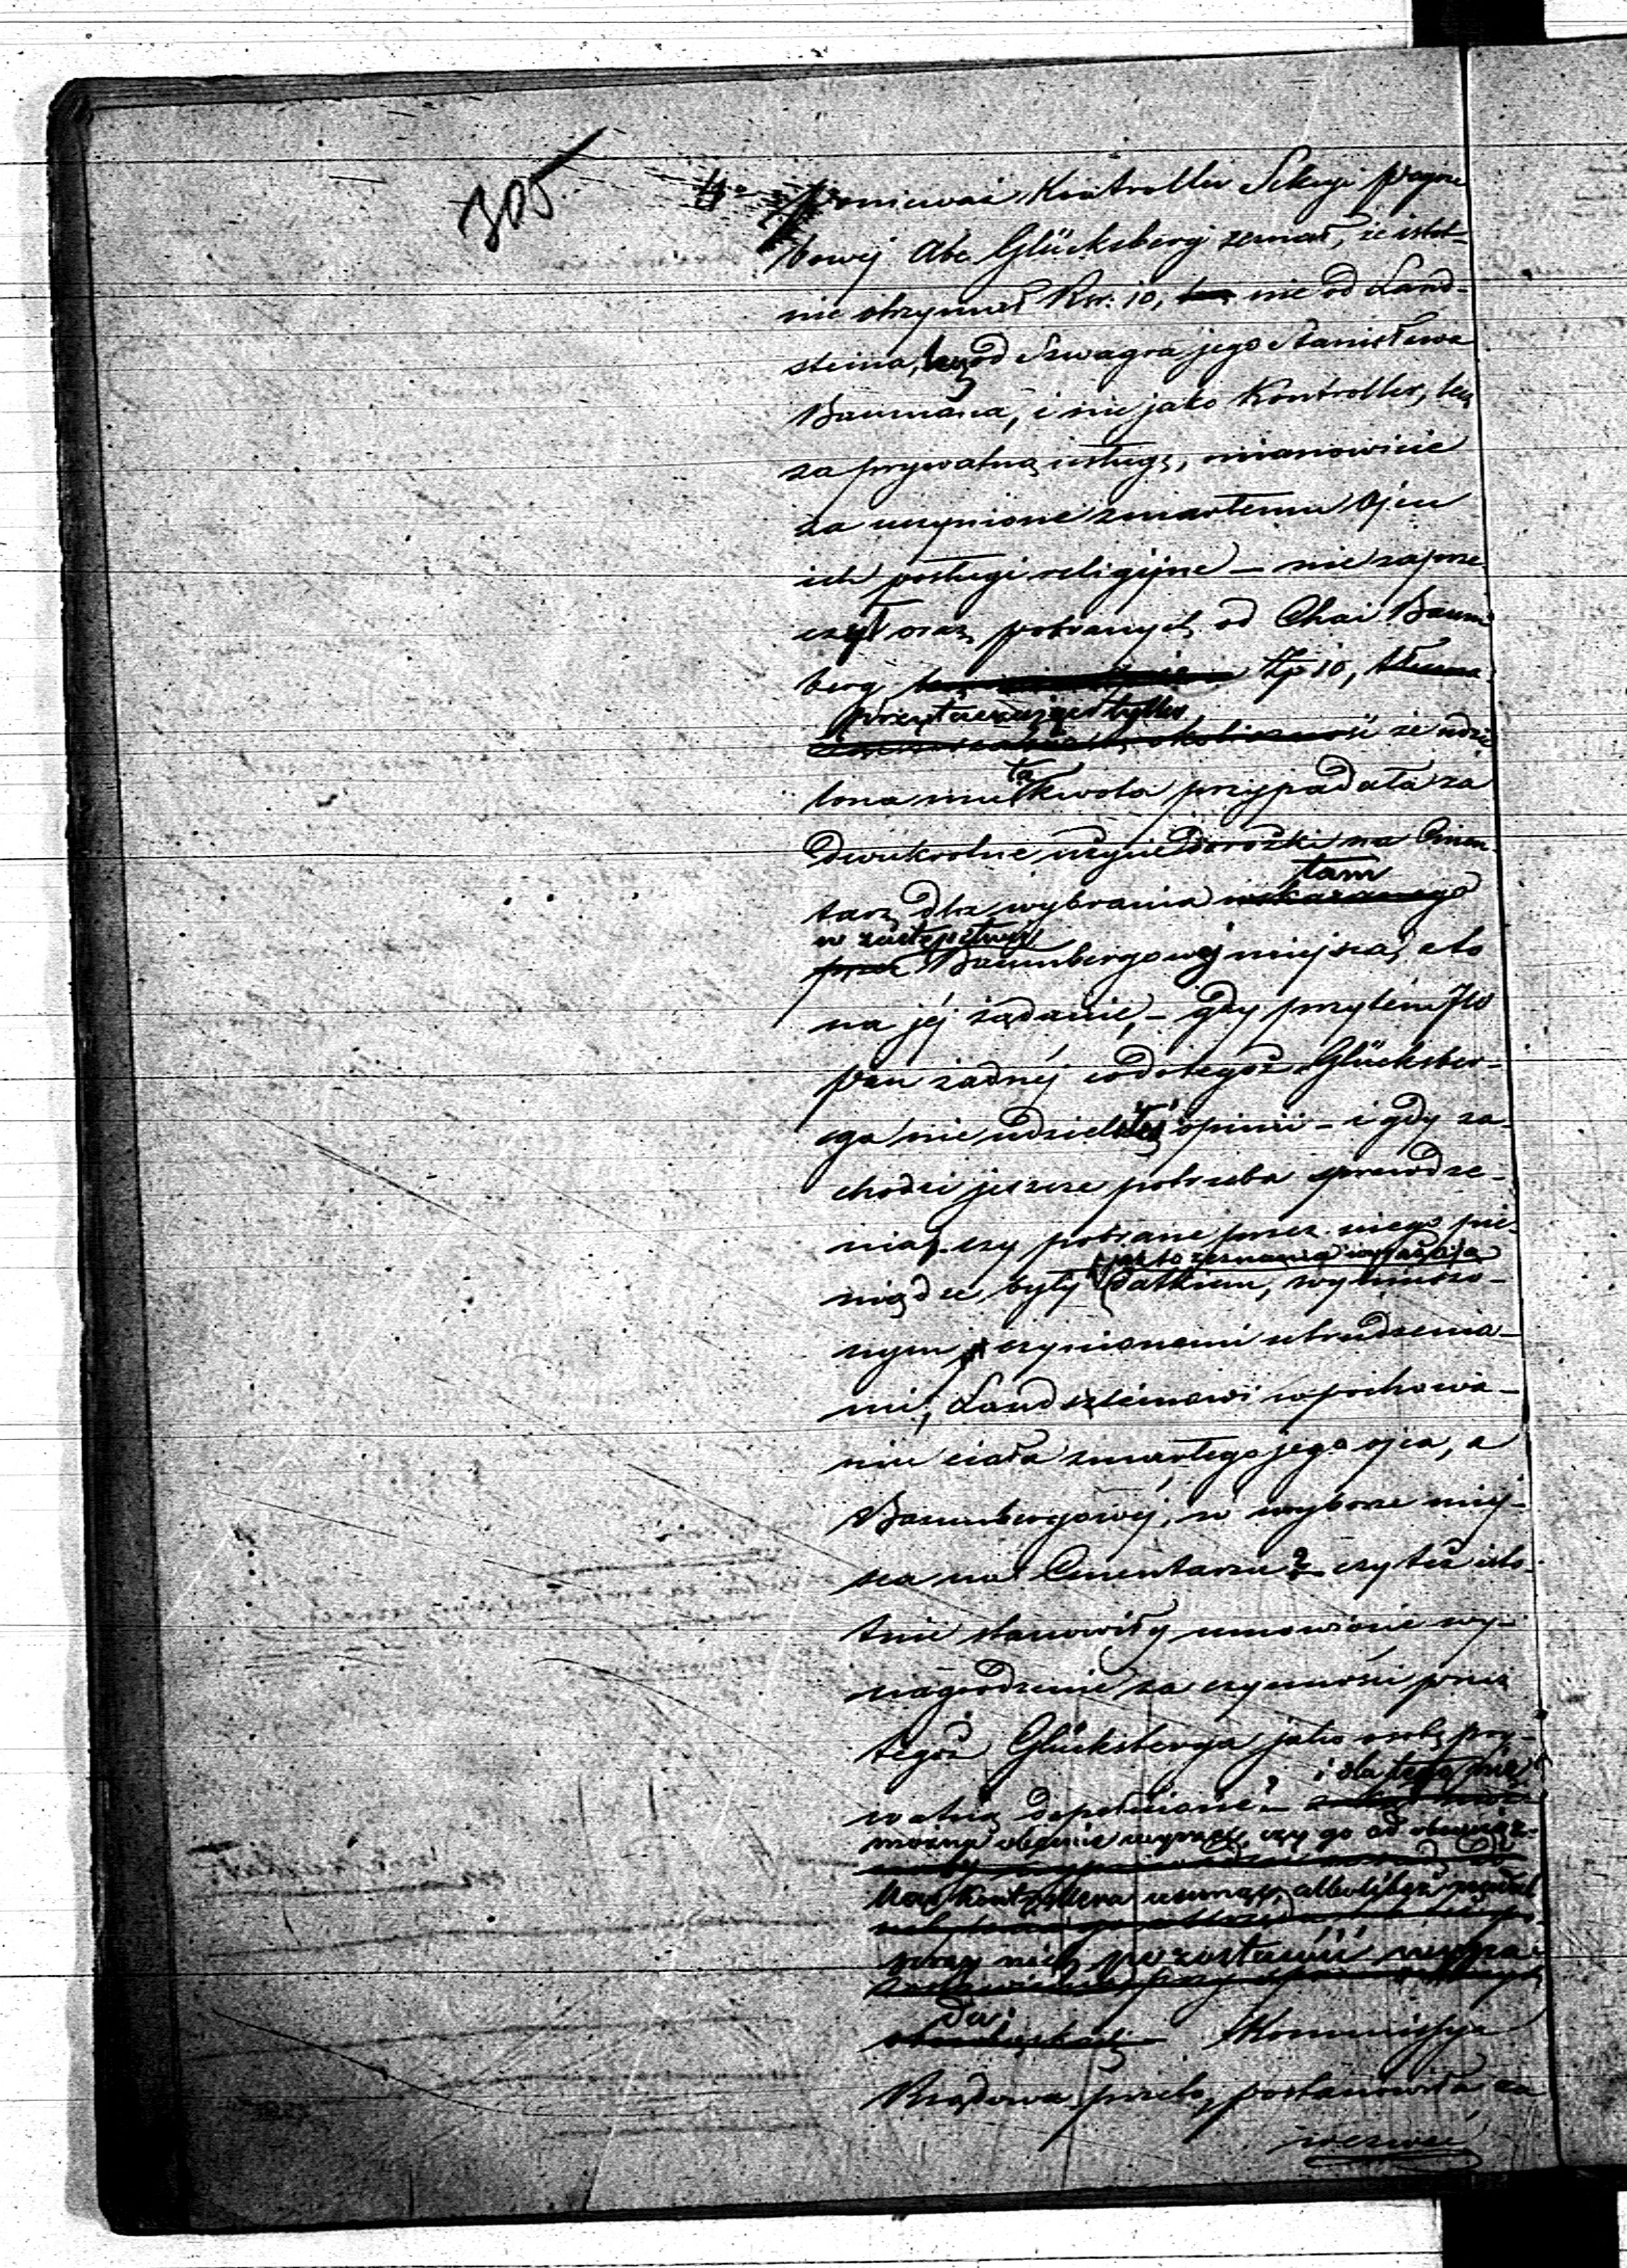 305
4° Ponieważ Kontroller Sekcyi pogrze
bowej Abe Glücksberg zeznał, że istot-
nie otrzymał Rsr. 10, nie od Land-
steina, lecz od Szwagra jego Stanisława
Baumana, i nie jako Kontroller, lecz
za prywatną usługę, mianowicie
za uczynione zmarłemu ojcu
ich posługi religijne – nie zaprze
czył oraz pobranych od Chai Baum
berg Zp 10,
przytaczając tylko,
okoliczność że udzie
lona mu ta kwota przypadała za
dwukrotne użycie dorożki na Cmen
tarz dla wybrania wskazanego
tam
w zastępstwie
przez Baumbergowej miejsca, a to
na jéj żądanie, – gdy przytém JW
Pan żadnéj co do tegoż Glücksber-
ga nie udzieliłeś opinii – i gdy za-
chodzi jeszcze potrzeba sprawdze-
nia, czy pobrane przez niego pie-
niądze, były datkiem,
jak to zeznania wyrażają
nym czynionemi utrudzenia-
mi, Landszteinowi w pochowa-
niu ciała zmarłego jego ojca, a
Baumbergowéj, w wyborze miej-
sca na Cmentarzu? czy też isto-
tnie stanowiły umówione wy-
nagrodzenie za czynności przez
tegoż Glücksberga jako osobę pry-
watną dopełnione? –
i dla tego nie
można obecnie wyrzec, czy go od obowiąz-
ków Kontrollera usunąć, albo
przy nich pozostawić
Kommissya
Rządowa przeto, postanowiła za
wezwać